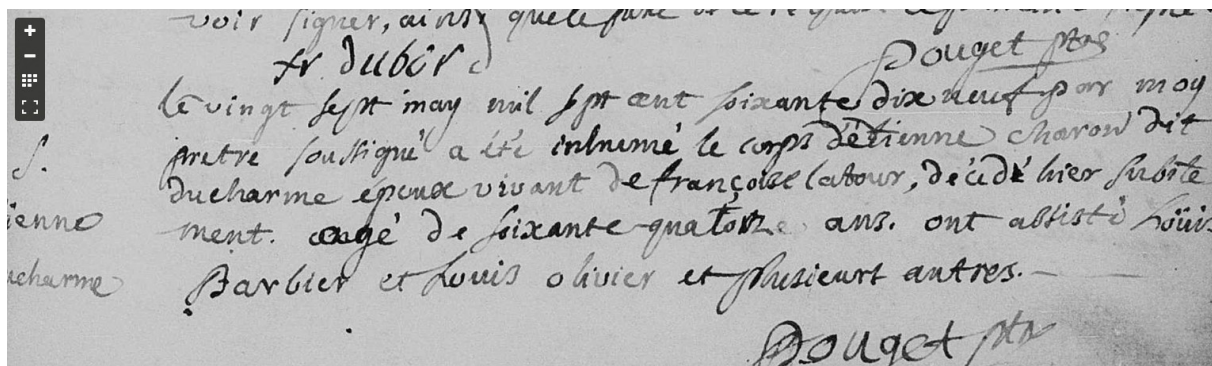 voir signer, ainsi que le
fr. dubord
Pouget ptre
le vingt sept may mil sept cent soixante dix neuf par moy
S.
pretre soussigné a été inhumé le corps d'étienne charon dit
ducharme epoux vivant de françoise latour, décidé hier subite
ienne
ment. aagé de soixante quatorze ans. ont assisté Loüis
ucharme
Barbier et Louis olivier et plusieurs autres.
Pouget ptre